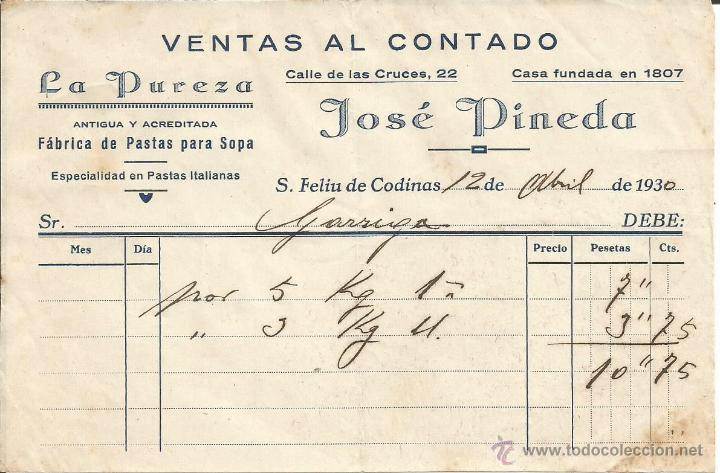 VENTAS AL CONTADO
La Pureza
ANTIGUA Y ACREDITADA
Fábrica de Pastas para Sopa
Especialidad en Pastas Italianas
Calle de las Cruces, 22 Casa fundada en 1807
José Pineda
S. Feliu de Codinas, 12 de Abril de 1930
Sr. Garriga DEBE:
Mes Día Precio Pesetas Cts.
por 5 Kg 1ª 7"
" 3 Kg 3" 75
10" 75
© www.todocoleccion.net